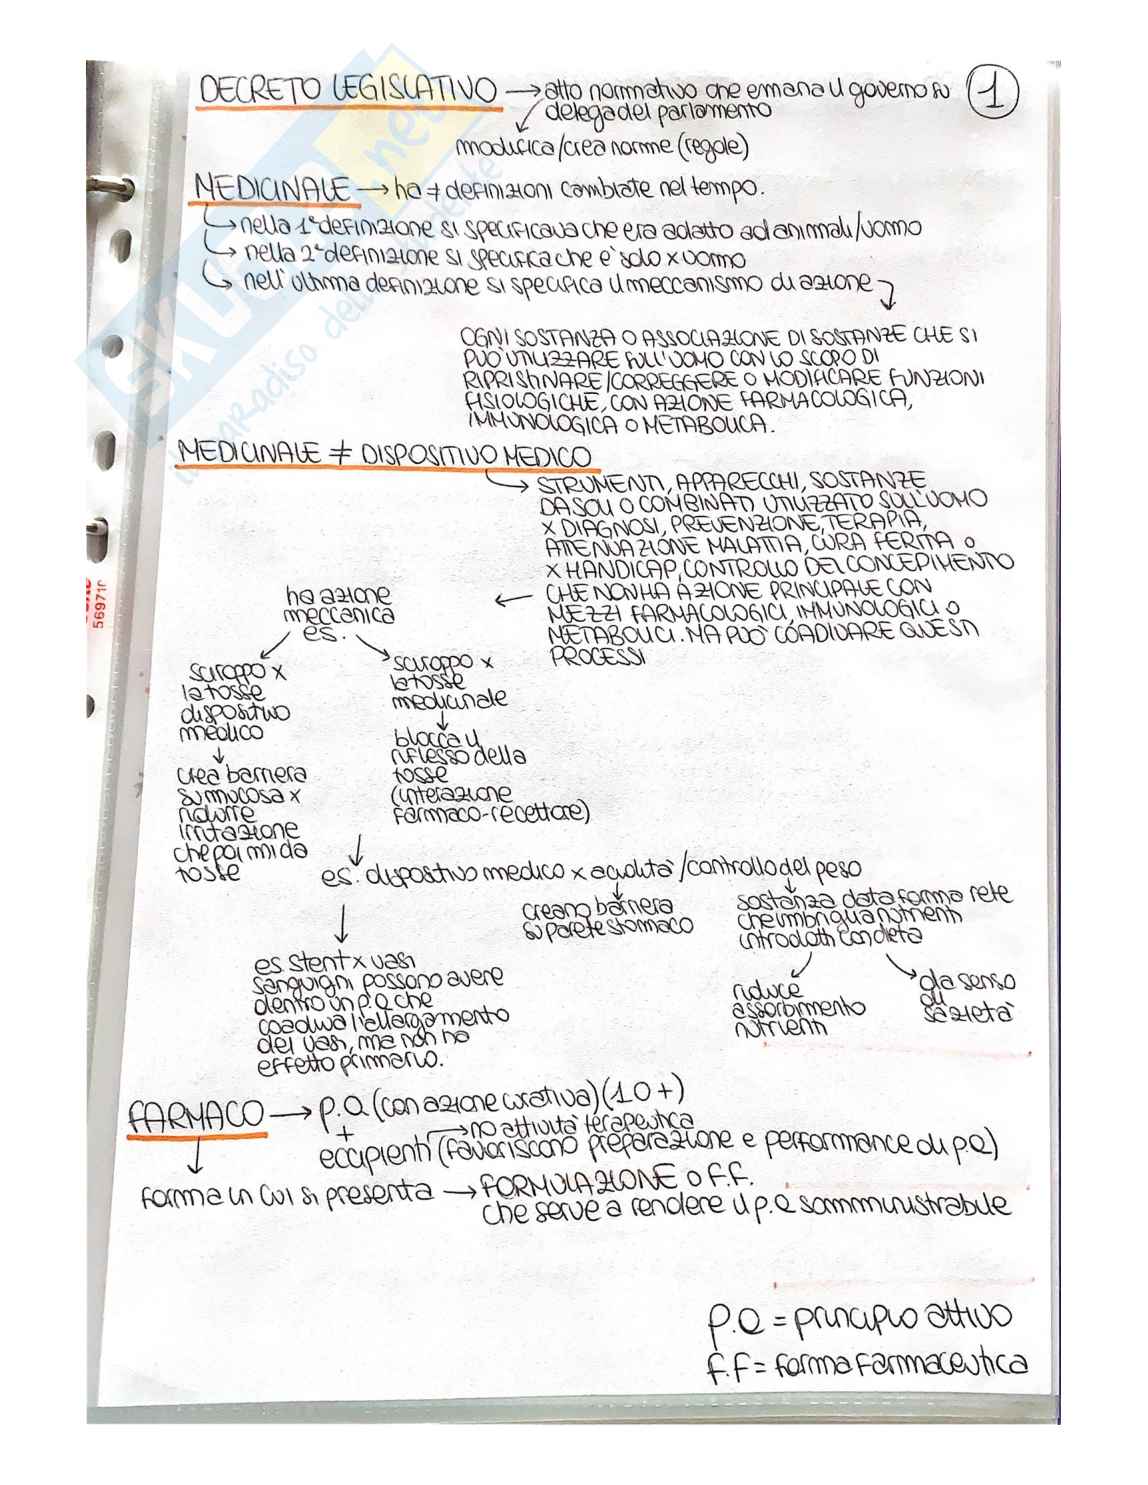 DECRETO LEGISLATIVO → atto normativo che emana il governo su
delega del parlamento
1
modifica/crea norme (regole)
MEDICINALE → ha ≠ definizioni cambiate nel tempo.
→ nella 1ª definizione si specificava che era adatto ad animali/uomo
→ nella 2ª definizione si specifica che è solo x uomo
→ nell'ultima definizione si specifica il meccanismo di azione
OGNI SOSTANZA O ASSOCIAZIONE DI SOSTANZE CHE SI
PUO' UTILIZZARE SULL'UOMO CON LO SCOPO DI
RIPRISTINARE/CORREGGERE O MODIFICARE FUNZIONI
FISIOLOGICHE, CON AZIONE FARMACOLOGICA,
IMMUNOLOGICA O METABOLICA.
MEDICINALE ≠ DISPOSITIVO MEDICO
→ STRUMENTI, APPARECCHI, SOSTANZE
DA SOLI O COMBINATI UTILIZZATO SULL'UOMO
X DIAGNOSI, PREVENZIONE, TERAPIA,
ATTENUAZIONE MALATTIA, CURA FERITA O
X HANDICAP, CONTROLLO DEL CONCEPIMENTO
CHE NON HA AZIONE PRINCIPALE CON
MEZZI FARMACOLOGICI, IMMUNOLOGICI O
METABOLICI. MA PUO' COADIUVARE QUESTI
PROCESSI
ha azione
meccanica
es.
sciroppo x
la tosse
dispositivo
medico
↓
crea barriera
su mucosa x
ridurre
irritazione
che poi mi da
tosse
sciroppo x
la tosse
medicinale
↓
blocca il
riflesso della
tosse
(interazione
farmaco-recettore)
es. dispositivo medico x acidità/controllo del peso
creano barriera
su parete stomaco
sostanza data forma rete
che imbriglia nutrienti
introdotti con dieta
riduce
assorbimento
nutrienti
da senso
di
sazietà
es. stent x vasi
sanguigni possono avere
dentro un p.a che
coadiuva l'allargamento
dei vasi, ma non ha
effetto primario.
FARMACO → p.a. (con azione curativa) (1 o +)
+
→ no attività terapeutica
eccipienti (favoriscono preparazione e performance di p.a)
forma in cui si presenta → FORMULAZIONE o F.F.
che serve a rendere il p.a somministrabile
p.a = principio attivo
f.f = forma farmaceutica
569710
SKUOLA.net
il paradiso dello studente